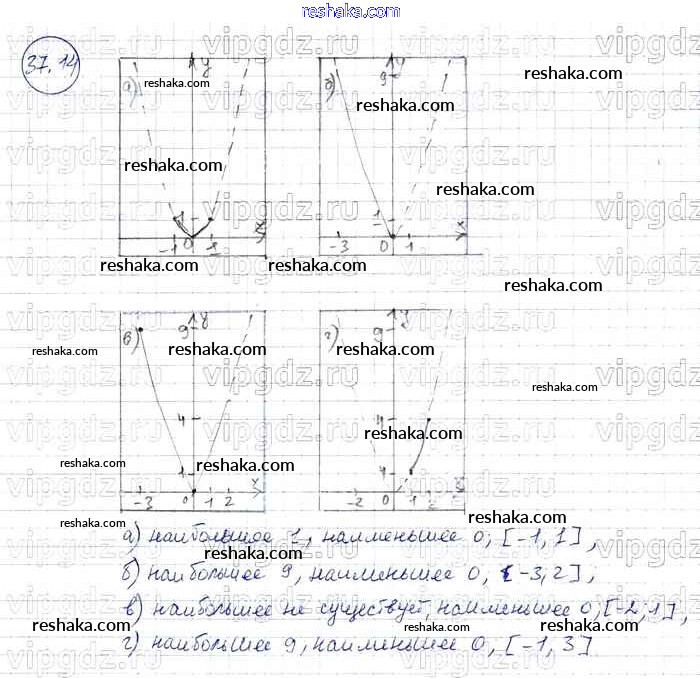 reshaka.com
37.14
а) y 1 -1 0 1 x
б) 9 y 1 -3 0 1 x
в) 9 y 4 1 -3 0 1 2 x
г) 9 y 4 1 -2 0 1 2 x
а) наибольшее 1, наименьшее 0, [-1, 1],
б) наибольшее 9, наименьшее 0, [-3, 2];
в) наибольшее не существует, наименьшее 0, [-2, 1],
г) наибольшее 9, наименьшее 0, [-1, 3]
vipgdz.ru
reshaka.com